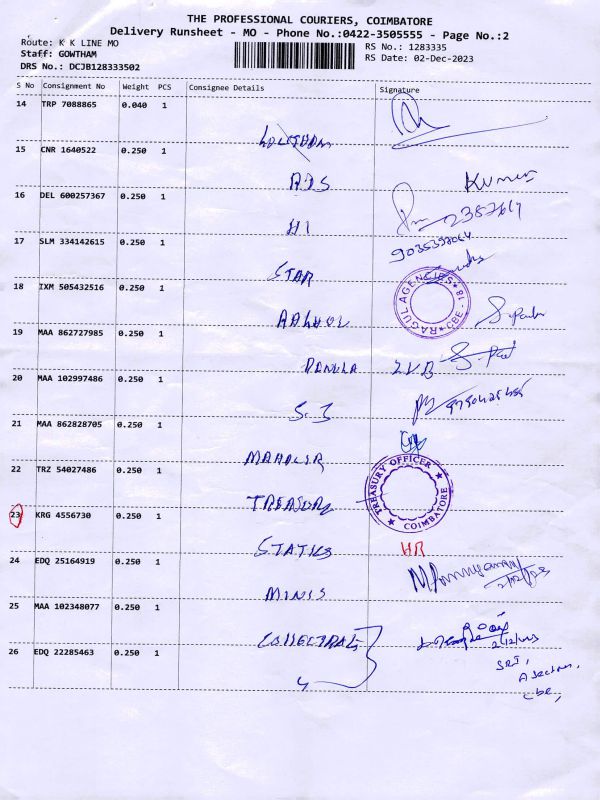 THE PROFESSIONAL COURIERS, COIMBATORE
Delivery Runsheet - MO - Phone No.:0422-3505555 - Page No.:2
Route: K K LINE MO
RS No.: 1283335
Staff: GOWTHAM
RS Date: 02-Dec-2023
DRS No.: DCJB128333502
S No Consignment No Weight PCS Consignee Details Signature
14 TRP 7088865 0.040 1
15 CNR 1640522 0.250 1
ADS Kumar
16 DEL 600257367 0.250 1
HI
17 SLM 334142615 0.250 1
STAR
RAGUL AGENCIES CBE-18
18 IXM 505432516 0.250 1
19 MAA 862727985 0.250 1
20 MAA 102997486 0.250 1
S.J
21 MAA 862828705 0.250 1
22 TRZ 54027486 0.250 1
TREASURY
TREASURY OFFICER COIMBATORE
23 KRG 4556730 0.250 1
HR
24 EDQ 25164919 0.250 1
MINIS
25 MAA 102348077 0.250 1
26 EDQ 22285463 0.250 1